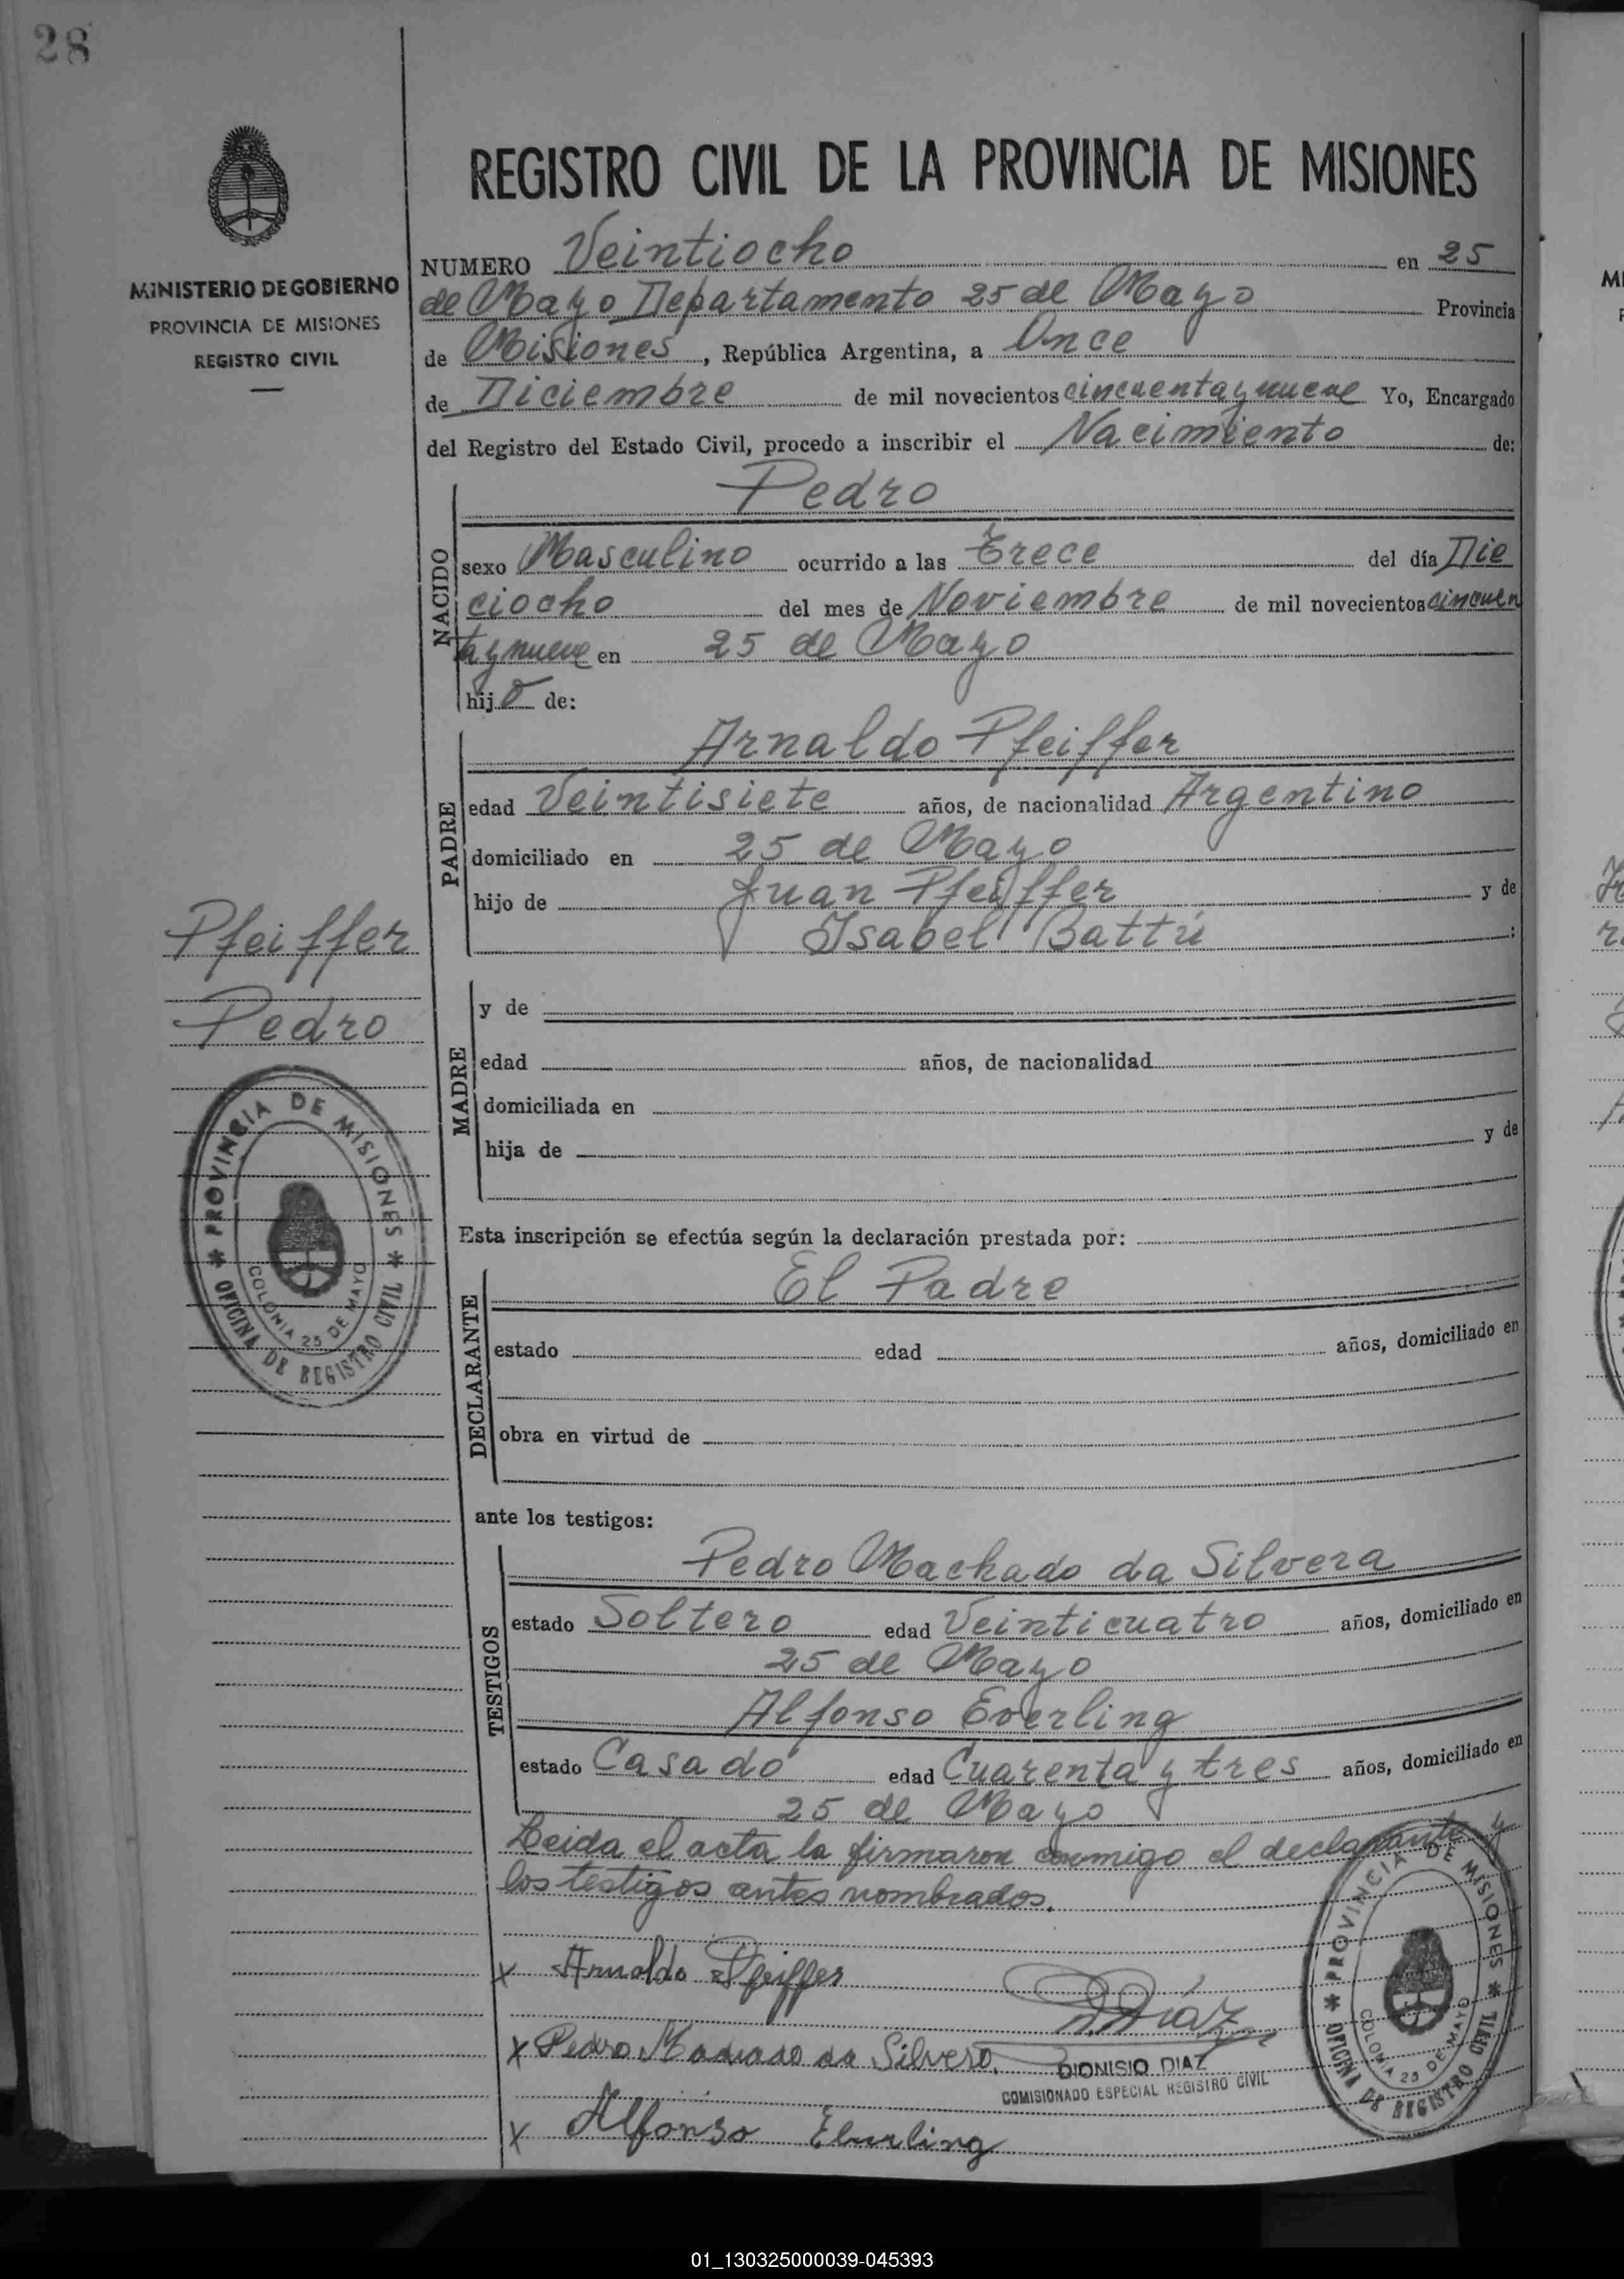 28
MINISTERIO DE GOBIERNO
PROVINCIA DE MISIONES
REGISTRO CIVIL
REGISTRO CIVIL DE LA PROVINCIA DE MISIONES
NUMERO Veintiocho en 25
de Mayo Departamento 25 de Mayo Provincia
de Misiones, República Argentina, a Once
de Diciembre de mil novecientos cincuenta y nueve Yo, Encargado
del Registro del Estado Civil, procedo a inscribir el Nacimiento de:
NACIDO
Pedro
sexo Masculino ocurrido a las Trece del día Die
ciocho del mes de Noviembre de mil novecientos cincuen
ta y nueve en 25 de Mayo
hijo de:
PADRE
Arnaldo Pfeiffer
edad Veintisiete años, de nacionalidad Argentino
domiciliado en 25 de Mayo
hijo de Juan Pfeiffer y de
Isabel Battú :
Pfeiffer
Pedro
MADRE
y de
edad años, de nacionalidad
domiciliada en
hija de y de
PROVINCIA DE MISIONES
OFICINA DE REGISTRO CIVIL
COLONIA 25 DE MAYO
Esta inscripción se efectúa según la declaración prestada por:
DECLARANTE
El Padre
estado edad años, domiciliado en
obra en virtud de
ante los testigos:
TESTIGOS
Pedro Machado da Silvera
estado Soltero edad Veinticuatro años, domiciliado en
25 de Mayo
Alfonso Everling
estado Casado edad Cuarenta y tres años, domiciliado en
25 de Mayo
Leida el acta la firmaron conmigo el declarante y
los testigos antes nombrados.
x Arnaldo Pfeiffer
D. Díaz
x Pedro Machado da Silvero.
DIONISIO DIAZ
COMISIONADO ESPECIAL REGISTRO CIVIL
x Alfonso Eburling
PROVINCIA DE MISIONES
OFICINA DE REGISTRO CIVIL
COLONIA 25 DE MAYO
01_130325000039-045393